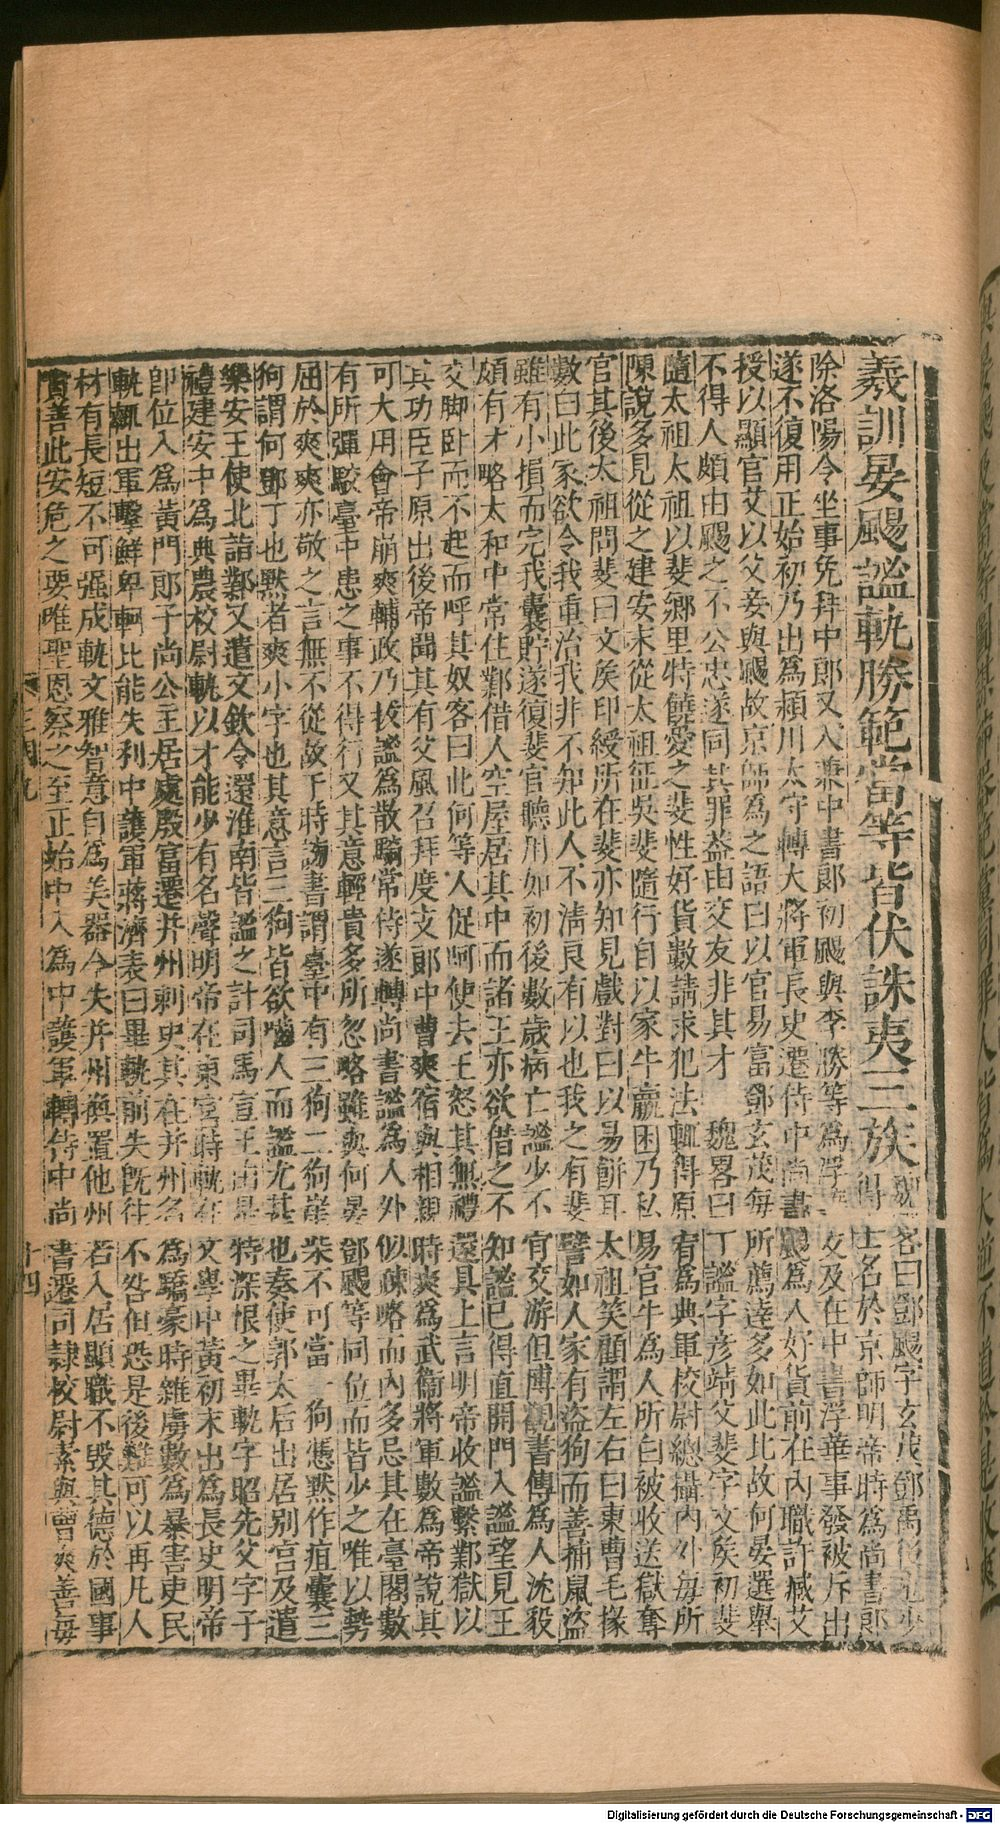 羲訓晏颺謐軌勝範當等皆伏誅夷三族
魏畧曰鄧颺字玄茂鄧禹後也少
得士名於京師明帝時爲尚書郎
除洛陽令坐事免拜中郎又入兼中書郎初颺與李勝等爲浮華友及在中書浮華事發被斥出
遂不復用正始初乃出爲潁川太守轉大將軍長史遷侍中尚書颺爲人好貨前在內職許臧艾
授以顯官艾以父妾與颺故京師爲之語曰以官易富鄧玄茂每所薦達多如此比故何晏選舉
不得人頗由颺之不公忠遂同其罪蓋由交友非其才　魏畧曰丁謐字彥靖父斐字文矦初斐
隨太祖太祖以斐鄉里特饒愛之斐性好貨數請求犯法輒得原宥爲典軍校尉總攝內外每所
陳說多見從之建安末從太祖征吳斐隨行自以家牛羸困乃私易官牛爲人所白被收送獄奪
官其後太祖問斐曰文矦印綬所在斐亦知見戲對曰以易餅耳太祖笑顧謂左右曰東曹毛掾
數白此家欲令我重治我非不知此人不清良有以也我之有斐譬如人家有盜狗而善捕鼠盜
雖有小損而完我囊貯遂復斐官聽用如初後數歲病亡謐少不肯交游但博觀書傳爲人沈毅
頗有才略太和中常住鄴借人空屋居其中而諸王亦欲借之不知謐已得直開門入謐望見王
交脚卧而不起而呼其奴客曰此何等人促呵使去王怒其無禮還具上言明帝收謐繫鄴獄以
其功臣子原出後帝聞其有父風召拜度支郎中曹爽宿與相親時爽爲武衞將軍數爲帝說其
可大用會帝崩爽輔政乃拔謐爲散騎常侍遂轉尚書謐爲人外似疎略而內多忌其在臺閣數
有所彈駮臺中患之事不得行又其意輕貴多所忽略雖與何晏鄧颺等同位而皆少之唯以勢
屈於爽爽亦敬之言無不從故于時謗書謂臺中有三狗二狗崖柴不可當一狗憑默作疽囊三
狗謂何鄧丁也默者爽小字也其意言三狗皆欲嚙人而謐尤甚也奏使郭太后出居別宮及遣
樂安王使北詣鄴又遣文欽令還淮南皆謐之計司馬宣王由是特深恨之畢軌字昭先父字子
禮建安中爲典農校尉軌以才能少有名聲明帝在東宮時軌在文學中黃初末出爲長史明帝
卽位入爲黃門郎子尚公主居處殷富遷并州刺史其在并州名爲驕豪時雜虜數爲暴害吏民
軌輒出軍擊鮮卑軻比能失利中護軍蔣濟表曰畢軌前失旣往不咎但恐是後難可以再凡人
材有長短不可强成軌文雅智意自爲美器今失并州換置他州若入居顯職不毀其德於國事
實善此安危之要唯聖恩察之至正始中入爲中護軍轉侍中尚書遷司隸校尉素與曹爽善每
十四
Digitalisierung gefördert durch die Deutsche Forschungsgemeinschaft - DFG